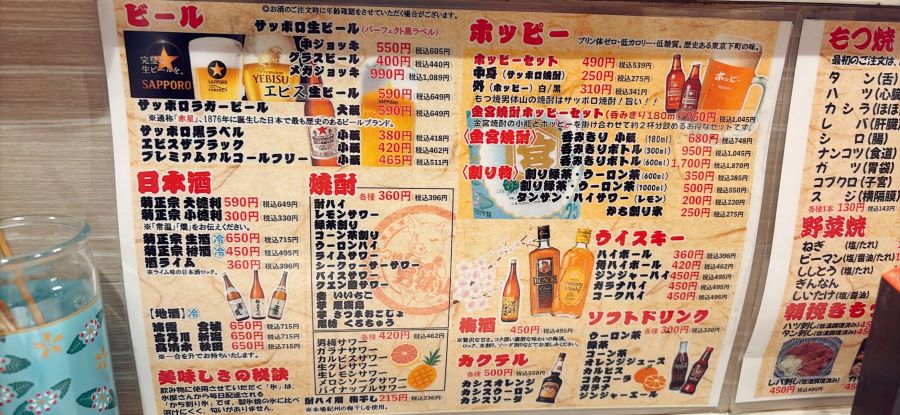 ビール
◎お酒のご注文時に年齢確認をさせていただく場合がございます。
サッポロ生ビール(パーフェクト黒ラベル)
中ジョッキ 550円 税込605円
グラスビール 400円 税込440円
メガジョッキ 990円 税込1,089円
ヱビス生ビール 590円 税込649円
完璧な
生ビールを。
SAPPORO
SAPPORO
YEBISU
サッポロラガービール 大瓶 590円 税込649円
※通称「赤星」、1876年に誕生した日本で最も歴史あるビールブランド。
サッポロ黒ラベル 小瓶 380円 税込418円
ヱビスザブラック 小瓶 420円 税込462円
プレミアムアルコールフリー 小瓶 465円 税込511円
日本酒
菊正宗 大徳利 590円 税込649円
菊正宗 小徳利 300円 税込330円
※「常温」「燗」をお伝えください。
菊正宗 生酒 冷 650円 税込715円
菊正宗 樽酒 冷 450円 税込495円
酒ライム 360円 税込396円
※ライム味の日本酒ロック。
【地酒】冷
浦霞 宮城 650円 税込715円
吉乃川 新潟 650円 税込715円
高清水 秋田 650円 税込715円
※一合を升でお待ちいたします。
美味しさの秘訣
飲み物に使用させていただく「氷」は、
氷屋さんから毎日配達される
「かち割り氷」です。製氷機の氷に比べ
溶けにくく、匂いがありません。
焼酎
各種 360円 税込396円
酎ハイ
レモンサワー
緑茶割り
ウーロン茶割り
ウーロンハイ
ライムサワー
シークワーサーサワー
トマトサワー
クエン酸サワー
麦 いいちこ
芋 黒霧島
芋 さつまおこじょ
黒糖 くろちゅう
各種 420円 税込462円
男梅サワー
ガラナサワー
カルピスサワー
生グレサワー
生レモンサワー
メロンソーダサワー
パイナップルサワー
酎ハイ用 梅干し 215円 税込236円
※本場紀州の梅干しを使用。
ホッピー
プリン体ゼロ・低カロリー・低糖質。歴史ある東京下町の味。
ホッピーセット 490円 税込539円
中身(サッポロ焼酎) 250円 税込275円
外(ホッピー)白/黒 310円 税込341円
もつ焼男体山の焼酎はサッポロ焼酎!旨い!!
金宮焼酎ホッピーセット(呑みきり180ml) 950円 税込1,045円
金宮焼酎の小瓶とホッピーを掛け合わせて約2杯分飲めるお得なセットです。
〈金宮焼酎〉 呑みきり 小瓶(180ml) 680円 税込748円
呑みきりボトル(300ml) 950円 税込1,045円
呑みきりボトル(600ml) 1,700円 税込1,870円
〈割り物〉 割り緑茶・ウーロン茶(600ml) 350円 税込385円
割り緑茶・ウーロン茶(1000ml) 500円 税込550円
タンサン・ハイサワー(レモン) 200円 税込220円
かち割り氷 250円 税込275円
ウイスキー
ハイボール 360円 税込396円
角ハイボール 420円 税込462円
ジンジャーハイ 450円 税込495円
ガラナハイ 450円 税込495円
コークハイ 450円 税込495円
梅酒 450円 税込495円
※贅沢な甘さ。コク深い濃厚な味わいの梅酒。
ロック、水割り、ソーダ割などでお楽しみください。
カクテル
各種 500円 税込550円
カシスオレンジ
カシスウーロン
カシスソーダ
ソフトドリンク
各種 300円 税込330円
ウーロン茶
緑茶
コーン茶
オレンジジュース
カルピス
コカコーラ
ガラナ
ジンジャーエール
もつ焼
最初のご注文は、
タン(舌)
ハツ(心臓)
カシラ(ほほ
レバ(肝臓)
シロ(腸)
ナンコツ(食道)
ガツ(胃袋)
コブクロ(子宮)
スジ(横隔膜)
各種1本 130円 税込143円
野菜焼
ねぎ(塩/たれ)
ピーマン(塩/醤油/た
ししとう(塩/たれ)
ぎんなん
しいたけ(塩/醤油
朝挽きもつ
ハツ刺し(低温調理済み)
タン刺し(低温調理済み)
レバ刺し(低温調理済み)
450円 税込495円